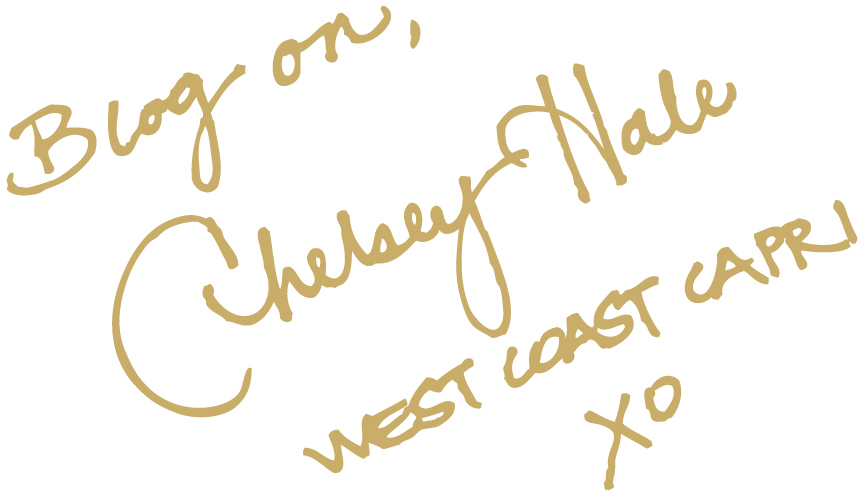 Blog on,
Chelsey Hale
WEST COAST CAPRI
XO